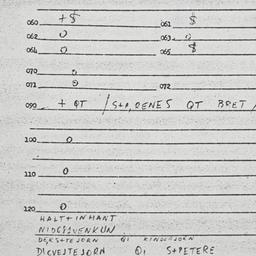 060 +$ 061 $
062 0 063 0
064 0 065 $
070 0
071 0 072
090 + QT / S+P, DENES QT BRET /
100 0
110 0
120 0
HALT+INHANT
DEKSTEJORN Qi KINDERJORN
DICVESTEJORN Qi S+PETERE